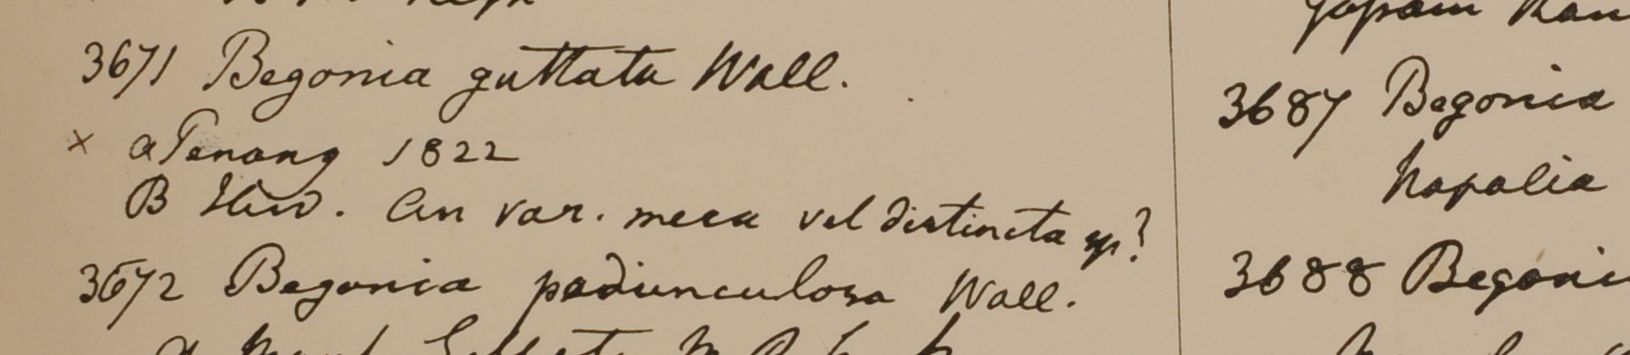 3671 Begonia guttata Wall.
× a Penang 1822
B Ibid. An var. mera vel distincta sp?
3672 Begonia pedunculosa Wall.
3687 Begonia
Napalia
3688 Begoni